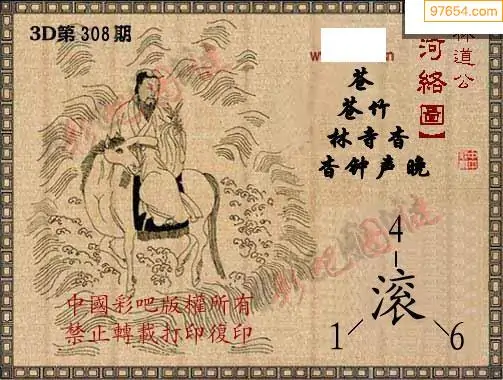 97654.com
3D第308期
道公
河络圖】
苍
苍竹
林寺杳
杳钟声晚
4
滚
1
6
中國彩吧版權所有
禁止轉載打印復印